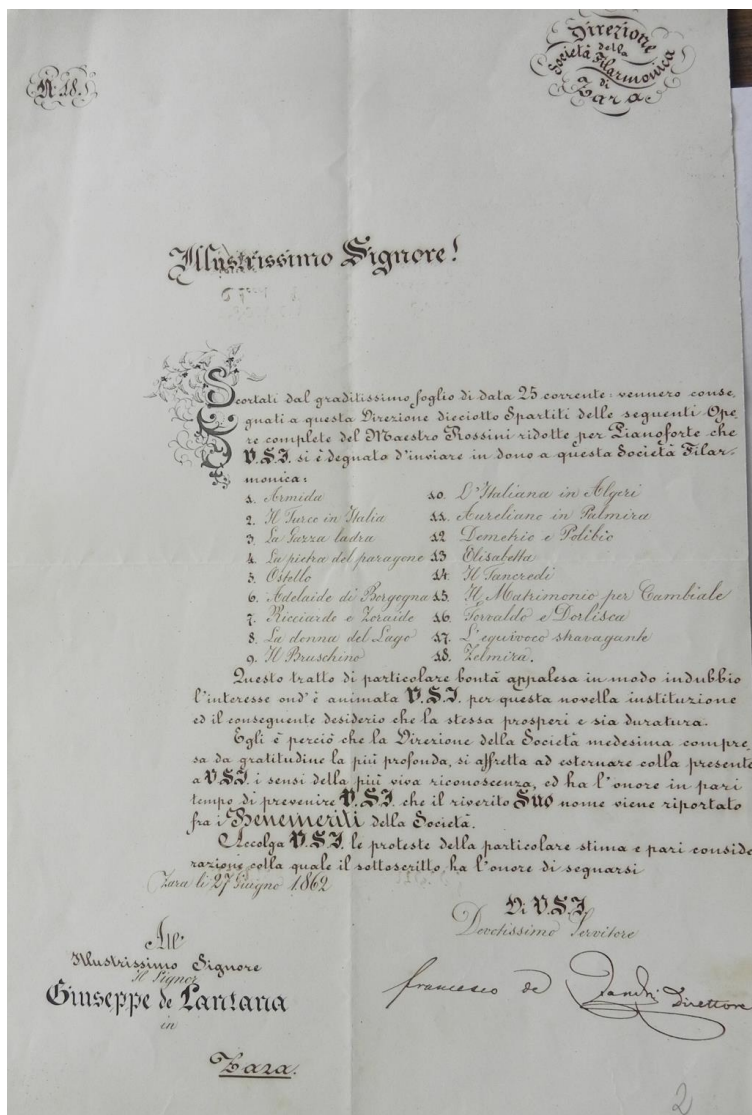 N. 18.
Direzione
della
Società Filarmonica
di
Zara
Illustrissimo Signore!
Scortati dal graditissimo foglio di data 25 corrente: vennero conse,
gnati a questa Direzione dieciotto Spartiti delle seguenti Ope,
re complete del Maestro Rossini ridotte per Pianoforte che
V.S.I. si è degnato d'inviare in dono a questa Società Filar-
monica:
1. Armida
2. Il Turco in Italia
3. La Gazza ladra
4. La pietra del paragone
5. Otello
6. Adelaide di Borgogna
7. Ricciardo e Zoraide
8. La donna del Lago
9. Il Bruschino
10. L'Italiana in Algeri
11. Aureliano in Palmira
12 Demetrio e Polibio
13 Elisabetta
14. Il Tancredi
15. Il Matrimonio per Cambiale
16. Torvaldo e Dorlisca
17. L'equivoco stravagante
18. Zelmira.
Questo tratto di particolare bontà appalesa in modo indubbio
l'interesse ond'è animata V.S.I. per questa novella instituzione
ed il conseguente desiderio che la stessa prosperi e sia duratura.
Egli è perciò che la Direzione della Società medesima compre,
sa da gratitudine la più profonda, si affretta ad esternare colla presente
a V.S.I. i sensi della più viva riconoscenza, ed ha l'onore in pari
tempo di prevenire V.S.I. che il riverito Suo nome viene riportato
fra i Benemeriti della Società.
Accolga V.S.I. le proteste della particolare stima e pari conside
razione, colla quale il sottoscritto, ha l'onore di segnarsi
Zara li 27 Giugno 1862
Di V.S.I.
Devotissimo Servitore
francesco de Direttore
All'
Illustrissimo Signore
Il Signor
Giuseppe de Lantana
in
Zara.
2